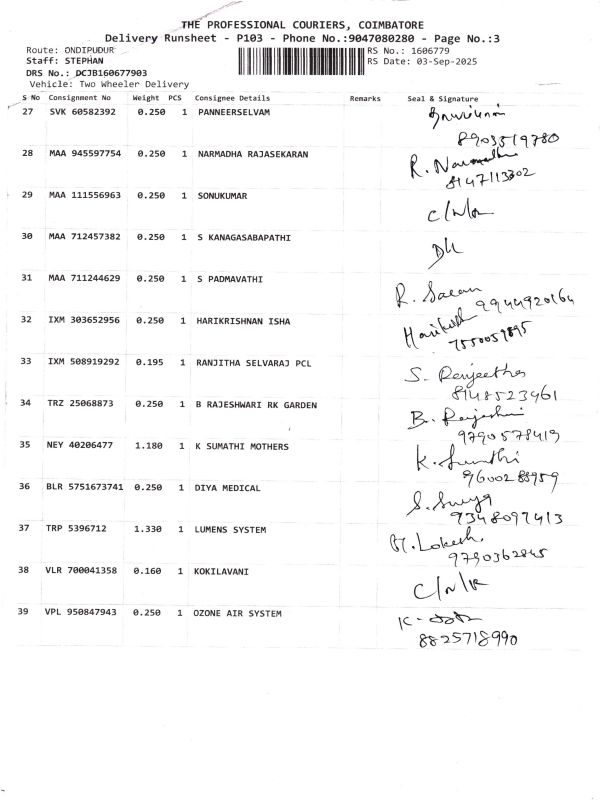 THE PROFESSIONAL COURIERS, COIMBATORE
Delivery Runsheet - P103 - Phone No.:9047080280 - Page No.:3
Route: ONDIPUDUR
RS No.: 1606779
Staff: STEPHAN
RS Date: 03-Sep-2025
DRS No.: DCJB160677903
Vehicle: Two Wheeler Delivery
S No Consignment No Weight PCS Consignee Details Remarks Seal & Signature
27 SVK 60582392 0.250 1 PANNEERSELVAM
8903519780
28 MAA 945597754 0.250 1 NARMADHA RAJASEKARAN R. Narmadha
8147113302
29 MAA 111556963 0.250 1 SONUKUMAR
30 MAA 712457382 0.250 1 S KANAGASABAPATHI
31 MAA 711244629 0.250 1 S PADMAVATHI
R. 9944920164
32 IXM 303652956 0.250 1 HARIKRISHNAN ISHA
7550059895
33 IXM 508919292 0.195 1 RANJITHA SELVARAJ PCL S. Renjeetha
8148523461
34 TRZ 25068873 0.250 1 B RAJESHWARI RK GARDEN B.
9790578419
35 NEY 40206477 1.180 1 K SUMATHI MOTHERS K. Sumathi
9600288959
36 BLR 5751673741 0.250 1 DIYA MEDICAL S. Surya
9348097413
37 TRP 5396712 1.330 1 LUMENS SYSTEM M. Lokesh.
9790362845
38 VLR 700041358 0.160 1 KOKILAVANI
39 VPL 950847943 0.250 1 OZONE AIR SYSTEM K.
8825718990